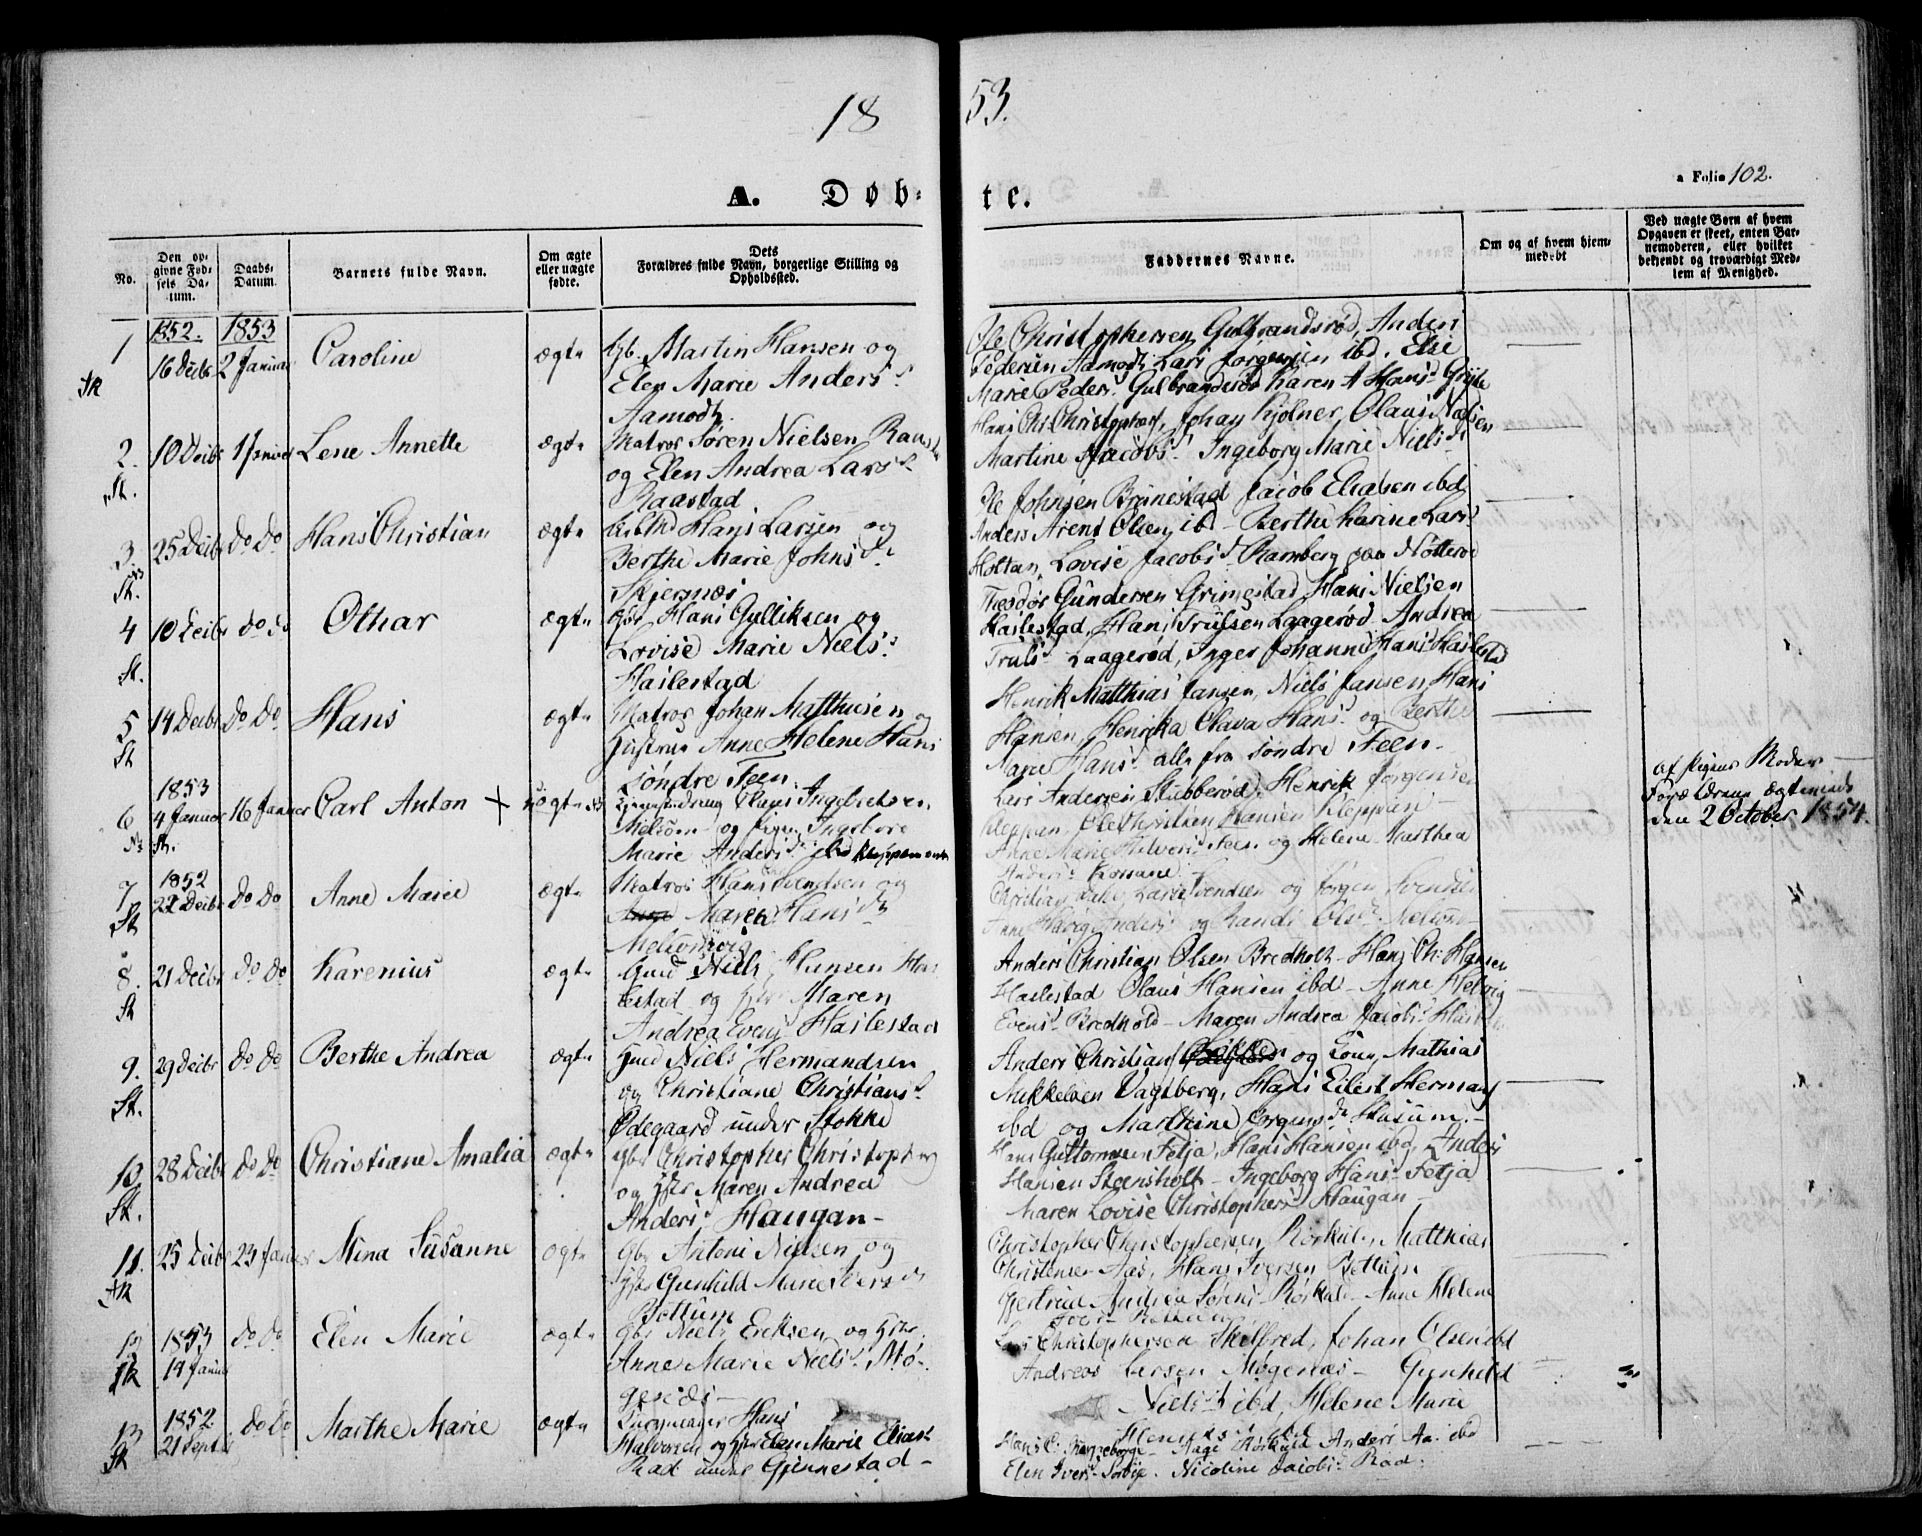 1853.
A. Døbte.
a Folio 102.
No.
Den opgivne Fødsels Datum.
Daabs-Datum.
Barnets fulde Navn.
Om ægte eller uægte fødte.
Dets Forældres fulde Navn, borgerlige Stilling og Opholdssted.
Faddernes Navne.
Om og af hvem hjemmedøbt
Ved uægte Børn af hvem Opgaven er skeet, enten Barnemoderen, eller hvilket bekjendt og troværdigt Medlem af Menighed.
1852. 1853
1 16 Decbr 2 Januar Caroline ægte Gb. Martin Hansen og
Elen Marie Anders d.
Aamodt.
Ole Christophersen Gulbrandsrød, Anders
Pedersen Aamodt, Lars Jørgensen ibd. Else
Marie Peders d. Gulbrandsrød Karen A Hans d.
2. 10 Decbr 1 Januar Lene Annette ægte Matros Søren Nielsen
og Elen Andrea Lars d.
Raastad
Hans Chr. Christophers, Johan Kjølner, Olaus Nielsen
Martine Jacobs d. Ingeborg Marie Niels dr
3. 25 Decbr do do Hans Christian ægte Hans Larsen og
Berthe Marie Johns dr.
Skjersnæs
Ole Johnsen Brunestad Jacob Eliasen ibd
Anders Arent Olsen ibd - Berthe Karine Lars d.
Holtan, Lovise Jacobs d. Ramberg paa Nøtterø
4 10 Decbr do do Othar ægte Gbr Hans Gulliksen og
Lovise Marie Niels d.
Haslestad
Theodor Gundersen Grimestad Hans Nielsen
Haslestad, Hans Trulsen Laagerød - Andrea
Truls d. Laagerød, Inger Johanne Hans d. Haslestad
5 14 Decbr do do Hans ægte Matros Johan Matthisen og
Hustrue Anne Helene Hans
søndre Feen.
Henrik Matthias Jansen, Niels Jansen, Hans
Hansen, Henrika Olava Hans d. og Berthe
Marie Hans d. alle fra søndre Feen -
1853
6 4 Januar 16 Januar Carl Anton + uægte Olaus Ingebretsen
Melsom - og Pigen Ingeborg
Marie Anders d.
Lars Andersen Stubberød, Henrik Jørgensen
Kleppan, Ole Hansen Kleppan -
Anne Marie Halvors d. Feen og Helene Marthea
Anders d.
af Pigens Moder -
Forældrene ægteviede
den 2 October 1854.
1852
7 22 Decbr do do Anne Marie ægte Matros Hans Svendsen og
Maren Hans dr
Melsomvig
Christian Lars Svendsen og Jørgen Svendsen
Anne Helvig Anders d. og Randi Ols d. Melsom -
8. 21 Decbr do do Karenius ægte Gmd Niels Hansen Has
lestad og Hstr Maren
Andrea Evens d. Haslestad
Anders Christian Olsen Bredholt - Hans Ch: Hansen
Haslestad Olaus Hansen ibd - Anne Helvig
Evens d. Bredhold - Maren Andrea Jacobs d.
9. 29 Decbr do do Berthe Andrea ægte Hmd Niels Hermandsen
og Christiane Christians d.
Ødegaard under Stokke
Anders Christian og Kone, Mathias
Mikkelsen Vagtberg, Hans Eilert Hermans
ibd og Marthine Jørgens dr. Husum. -
10 28 Decbr do do Christiane Amalia ægte Gbr Christopher Christophers
og Hstr Maren Andrea
Anders d. Haugan -
Hans Guttormsen Fetja, Hans Hansen ibd, Anders
Hansen Steensholt - Ingeborg Hans d. Fetja
Maren Lovise Christophers d. Haugan -
11. 25 Decbr 23 Januar Mina Susanne ægte Gbr Antoni Nielsen og
Hstr Gunhild Marie Ivers dr
Bottum
Christopher Christophersen Rørkul, Matthias
Christensen Aas, Hans Iversen Bottum
Gjertrud Andrea Sørens d. Rørkul - Anne Helene
12 1853 14 Januar do do Elen Marie ægte Gbr Niels Eriksen og Hstr.
Anne Marie Niels d. Mø-
genæs -
Lars Christophersen Skjelfred, Johan Olsen ibd
Andreas Iversen Møgenæs - Gunhild
Niels d. ibd, Helene Marie
13 1852 21 Septbr do do Marthe Marie ægte Hans
Halvorsen og Hstr Elen Marie Elias d.
Rad under Gjennestad -
Aage Rørkuld Anders Aa. ibd
Elen Ivers d. Nicoline Jacobs d. Rad.